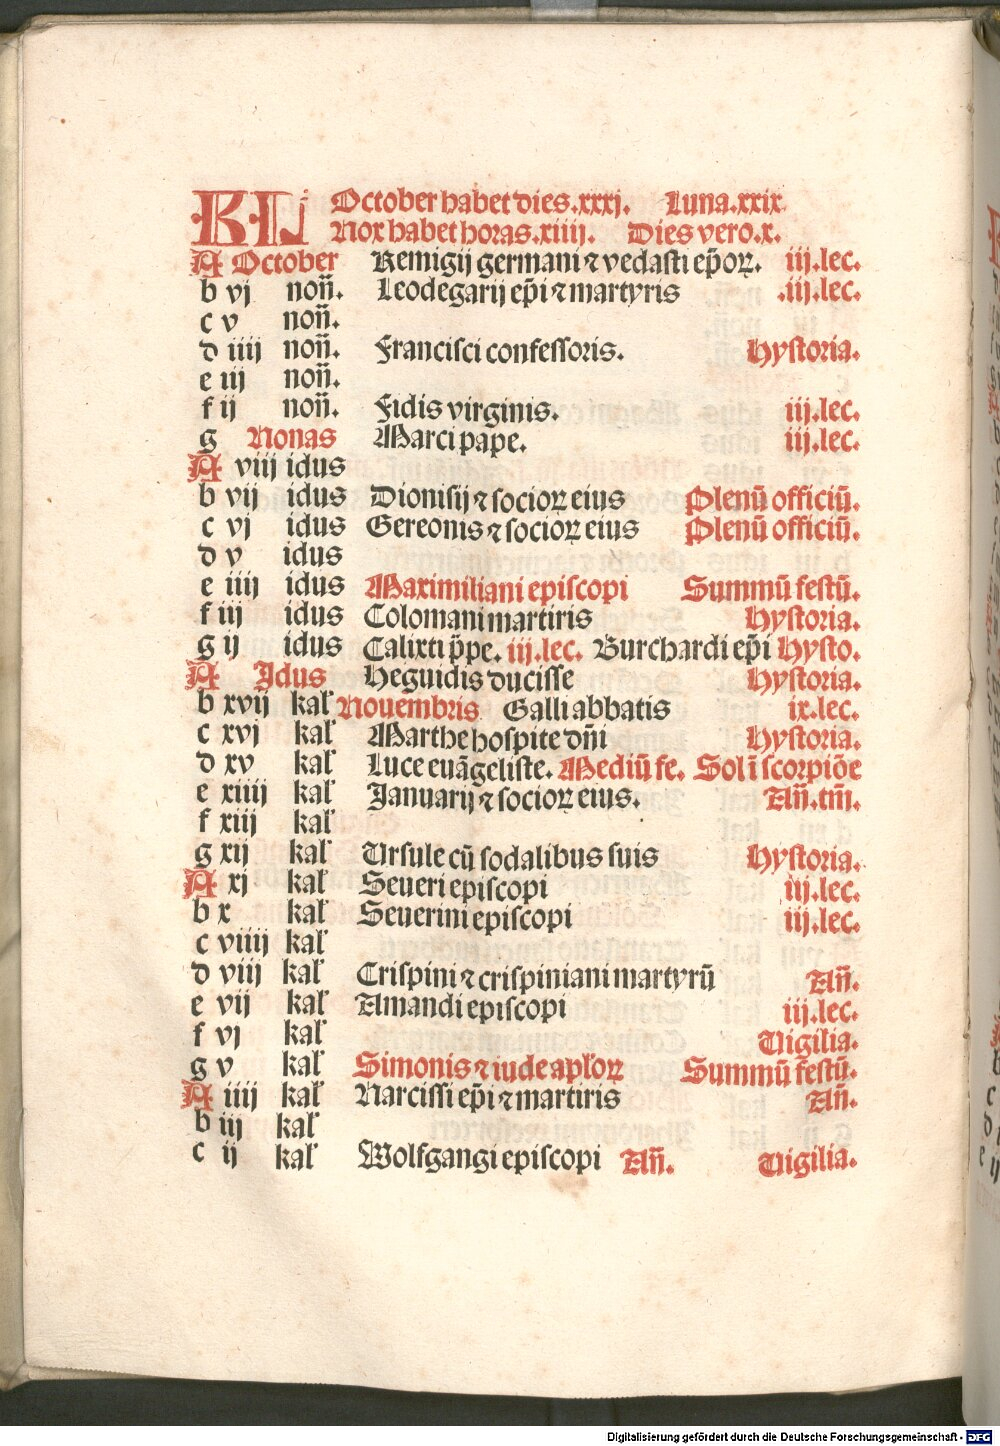 KL October habet dies.xxxj. Luna.xxix
Nox habet horas.xiiij. Dies vero.x.
A October Remigij germani ⁊ vedasti ep̄oꝝ. iij.lec.
b vj non̄. Leodegarij ep̄i ⁊ martyris .iij.lec.
c v non̄.
d iiij non̄. Francisci confessoris. Hystoria.
e iij non̄.
f ij non̄. Fidis virginis. iij.lec.
g Nonas Marci pape. iij.lec.
A viij idus
b vij idus Dionisij ⁊ socioꝝ eius Plenū officiū.
c vj idus Gereonis ⁊ socioꝝ eius Plenū officiū.
d v idus
e iiij idus Maximiliani episcopi Summū festū.
f iij idus Colomani martiris Hystoria.
g ij idus Calixti p̄pe. iij.lec. Burchardi ep̄i Hysto.
A Idus Heguidis ducisse Hystoria.
b xvij kal' Nouembris Galli abbatis ix.lec.
c xvj kal' Marthe hospite dn̄i Hystoria.
d xv kal' Luce euāgeliste. Mediū fe. Sol ī scorpiōe
e xiiij kal' Ianuarij ⁊ socioꝝ eius. An̄.tm̄.
f xiij kal'
g xij kal' Ursule cū sodalibus suis Hystoria.
A xj kal' Seueri episcopi iij.lec.
b x kal' Seuerini episcopi iij.lec.
c viiij kal'
d viij kal' Crispini ⁊ crispiniani martyrū An̄.
e vij kal' Amandi episcopi iij.lec.
f vj kal' Uigilia.
g v kal' Simonis ⁊ iude apl'oꝝ Summū festū.
A iiij kal' Narcissi ep̄i ⁊ martiris An̄.
b iij kal'
c ij kal' Wolfgangi episcopi An̄. Uigilia.
Digitalisierung gefördert durch die Deutsche Forschungsgemeinschaft - DFG